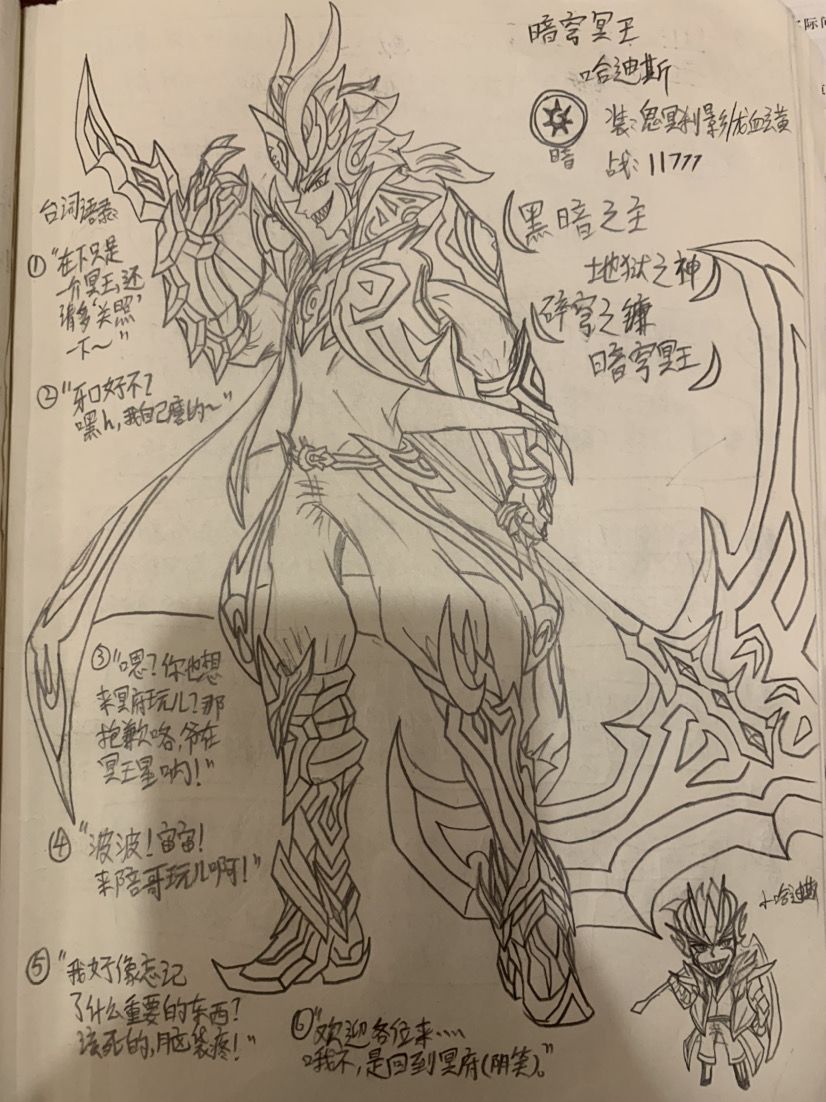 暗穹冥王
哈迪斯
暗
装:鬼冥利影/龙血玄黄
战:11777
黑暗之主
地狱之神
碎穹之镰
暗穹冥王
台词语录
①“在下只是
一介冥王,还
请多‘关照’
一下~”
②“牙口好不?
嘿h,我自己磨的~”
③“嗯?你也想
来冥府玩儿?那
抱歉咯,爷在
冥王星哟!”
④“波波!宙宙!
来陪哥玩儿啊!”
⑤“我好像忘记
了什么重要的东西?
该死的,脑袋疼!”
⑥“欢迎各位来……
哦不,是回到冥府(阴笑)。”
小哈迪斯